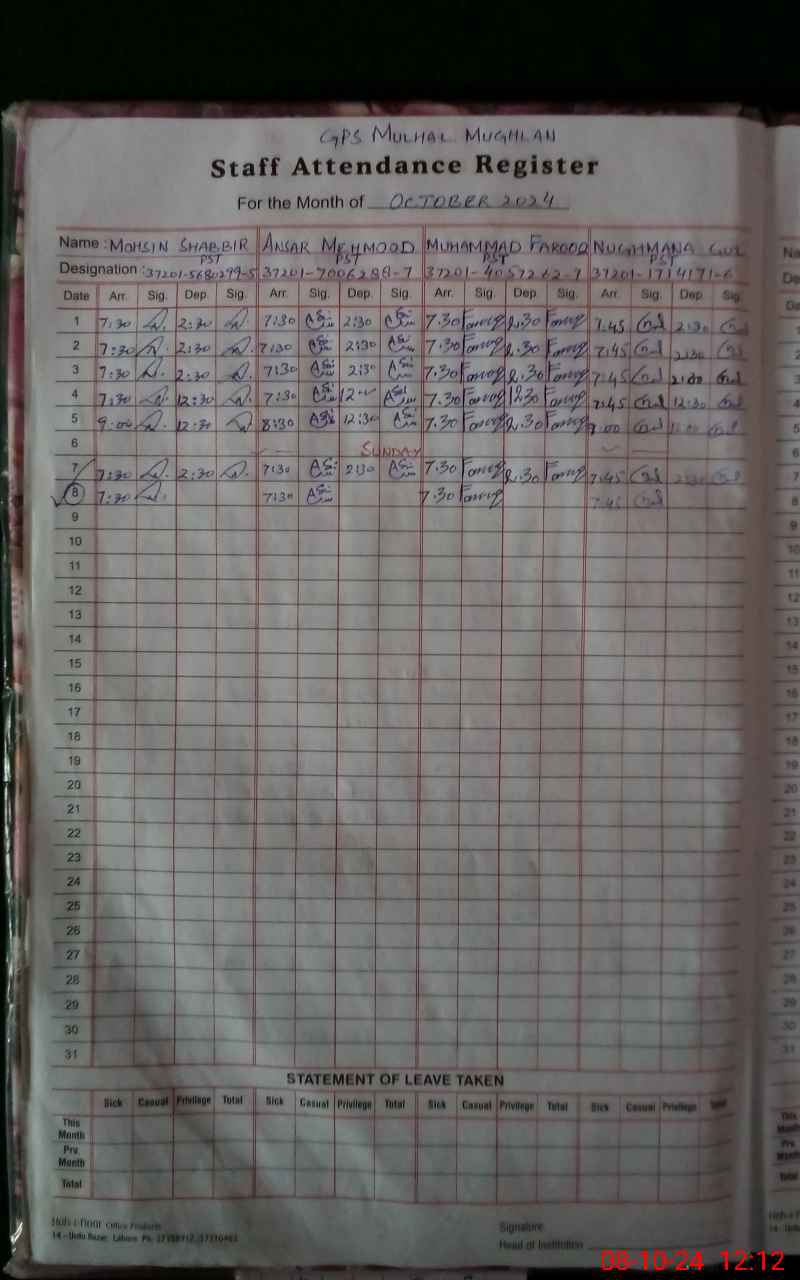 GPS MULHAL MUGHLAN
Staff Attendance Register
For the Month of OCTOBER 2024
Name : MOHSIN SHABBIR ANSAR MEHMOOD MUHAMMAD FAROOQ NUGHMANA GUL
PST PST PST PST
Designation : 37201-5680299-5 37201-7006288-7 37201-4057262-9 37201-1714171-6
Date Arr. Sig. Dep. Sig. Arr. Sig. Dep. Sig. Arr. Sig. Dep. Sig. Arr. Sig. Dep. Sig.
1 7:30 2:30 7:30 2:30 7.30 Farooq 2.30 Farooq 7.45 Gul 2:30 Gul
2 7:30 2:30 7:30 2:30 7.30 Farooq 2.30 Farooq 7:45 Gul 2:30 Gul
3 7:30 2:30 7:30 2:30 7.30 Farooq 2.30 Farooq 7:45 Gul 2:30 Gul
4 7:30 12:30 7:30 7.30 Farooq 12.30 Farooq 7:45 Gul 12:30 Gul
5 9:00 12:30 8:30 12:30 7.30 Farooq 2.30 Farooq 9:00 Gul Gul
6 SUNDAY
7 7:30 2:30 7:30 2:30 7.30 Farooq 2.30 Farooq 7:45 Gul 2:30 Gul
8 7:30 7:30 7.30 Farooq 7:45 Gul
9
10
11
12
13
14
15
16
17
18
19
20
21
22
23
24
25
26
27
28
29
30
31
STATEMENT OF LEAVE TAKEN
Sick Casual Privilege Total Sick Casual Privilege Total Sick Casual Privilege Total Sick Casual Privilege Total
This Month
Prv. Month
Total
Office Products
14 - Urdu Bazar, Lahore. Ph:
Signature
Head of Institution
08-10-24 12:12